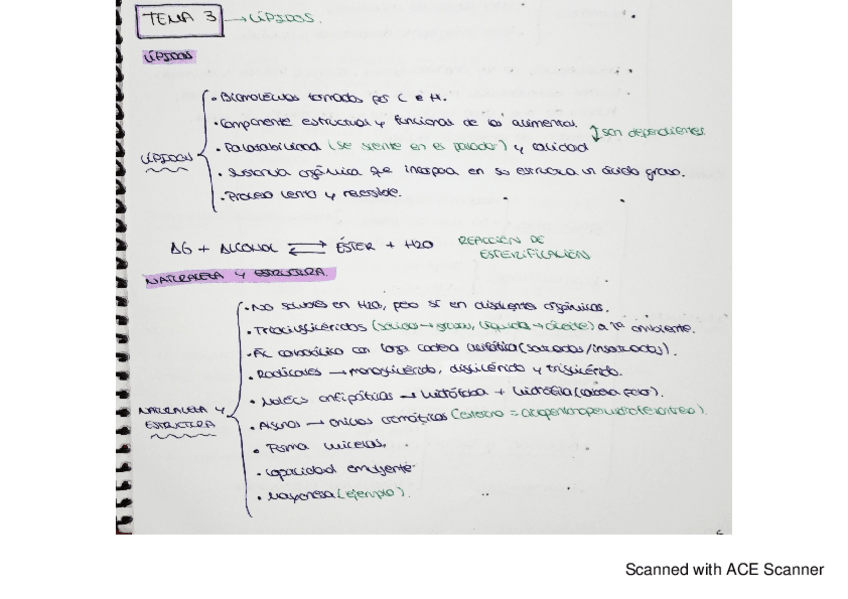 TEMA 3 → LÍPIDOS.
LÍPIDOS
• Biomoléculas formadas por C e H.
• Componente estructural y funcional de los alimentos.
• Palatabilidad (se siente en el paladar) y calidad ↕ son dependientes
LÍPIDOS
• Sustancia orgánica que incorpora en su estructura un ácido graso.
• Proceso lento y reversible.
AG + ALCOHOL ⇌ ÉSTER + H2O REACCIÓN DE ESTERIFICACIÓN
NATURALEZA Y ESTRUCTURA.
• No solubles en H2O, pero sí en disolventes orgánicos.
• Triacilglicéridos (sólidos → grasa, líquidos → aceite) a Tª ambiente.
• Ác carboxílico con larga cadena alifática (saturados/insaturados).
• Radicales → monoglicérido, diglicérido y triglicérido.
• Molécs anfipáticas → hidrófoba + hidrófila (cabeza polar).
NATURALEZA Y ESTRUCTURA
• Algunos → anillos aromáticos (esterano = ciclopentanoperhidrofenantreno).
• Forma micelas.
• Capacidad emulgente.
• Mayonesa (ejemplo).
Scanned with ACE Scanner